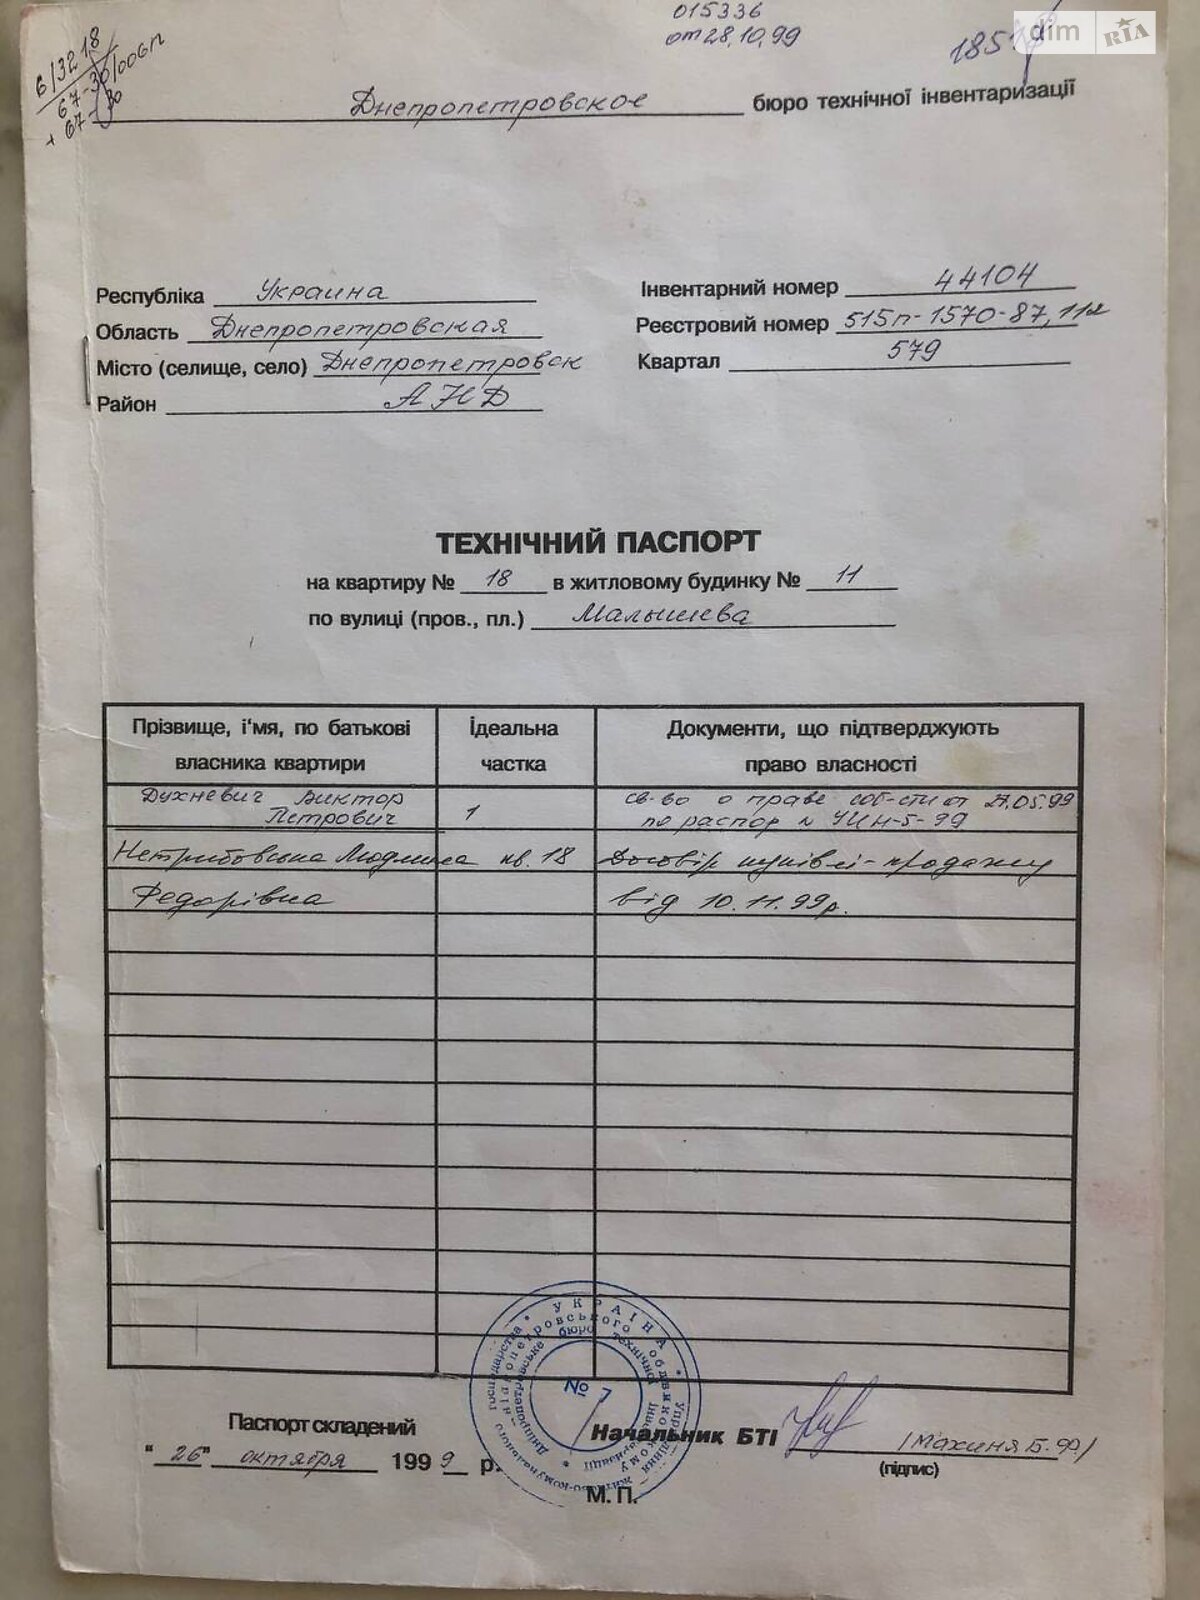 015336
от 28.10.99
dim RIA
6/3218
67-30/006п
+ 67-30
Днепропетровское бюро технічної інвентаризації
Республіка Украина
Область Днепропетровская
Місто (селище, село) Днепропетровск
Район АНД
Інвентарний номер 44104
Реєстровий номер 515п-1570-87, 11я
Квартал 579
ТЕХНІЧНИЙ ПАСПОРТ
на квартиру № 18 в житловому будинку № 11
по вулиці (пров., пл.) Малышева
Прізвище, і'мя, по батькові власника квартири
Ідеальна частка
Документи, що підтверджують право власності
Духневич Виктор Петрович
1
св-во о праве соб-сти от 27.05.99
по распор №
Нетрибовська Людмила Федорівна
кв. 18
Договір купівлі-продажу
від 10.11.99р.
Паспорт складений
"26" октября 1999 р.
УКРАЇНА
бюро технічної інвентаризації
№ 7
Начальник БТІ /Махиня Б.Ф./
(підпис)
М. П.